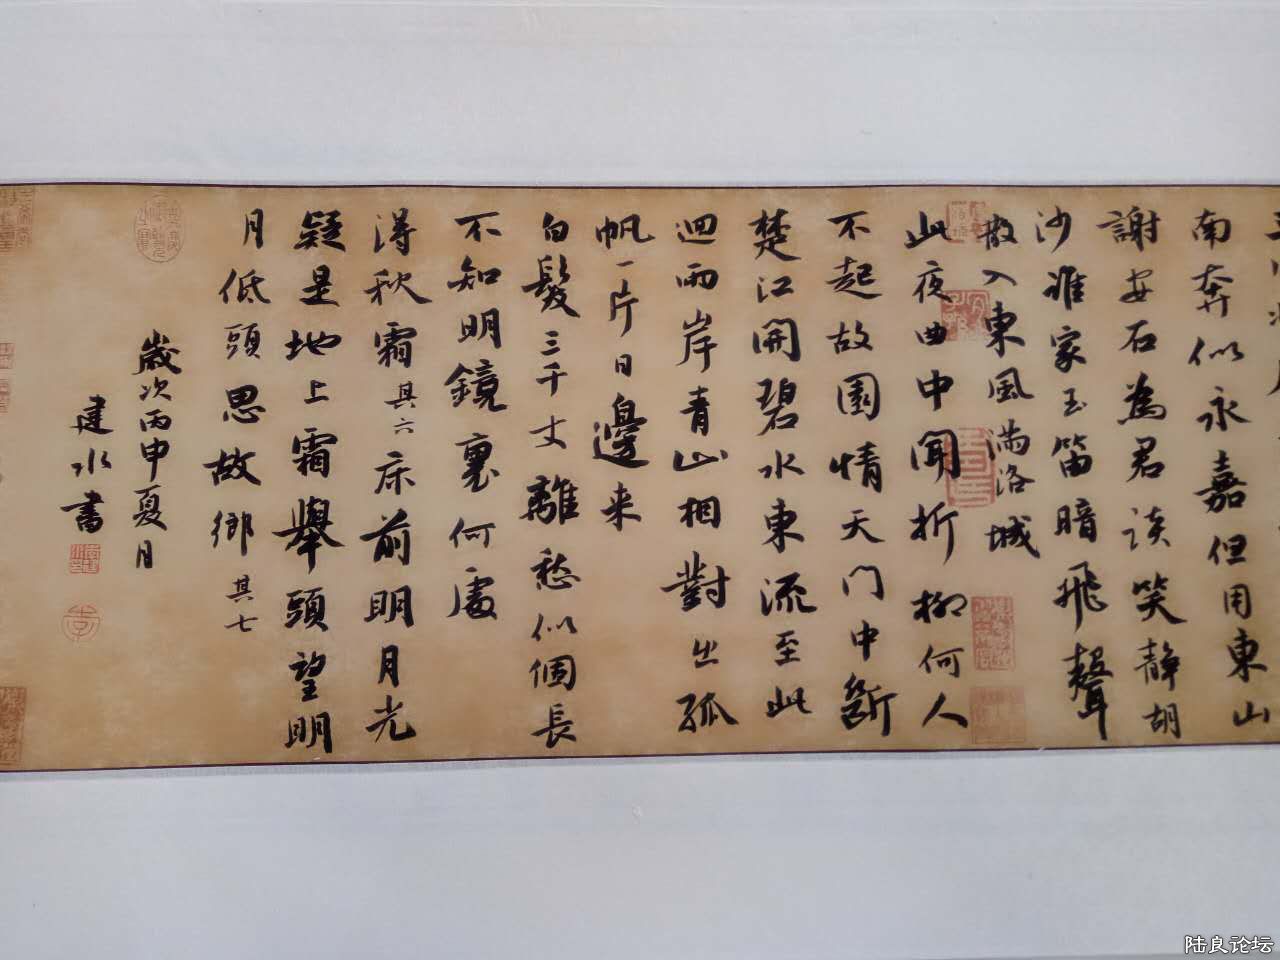 南奔似永嘉但用東山
謝安石為君談笑靜胡
沙誰家玉笛暗飛聲
散入東風满洛城
此夜曲中聞折柳何人
不起故園情天门中斷
楚江開碧水東流至此
迴兩岸青山相對出孤
帆一片日邊来
白髮三千丈離愁似個長
不知明鏡裏何處
得秋霜其六床前明月光
疑是地上霜舉頭望明
月低頭思故鄉其七
歲次丙申夏月
建水書
陆良论坛